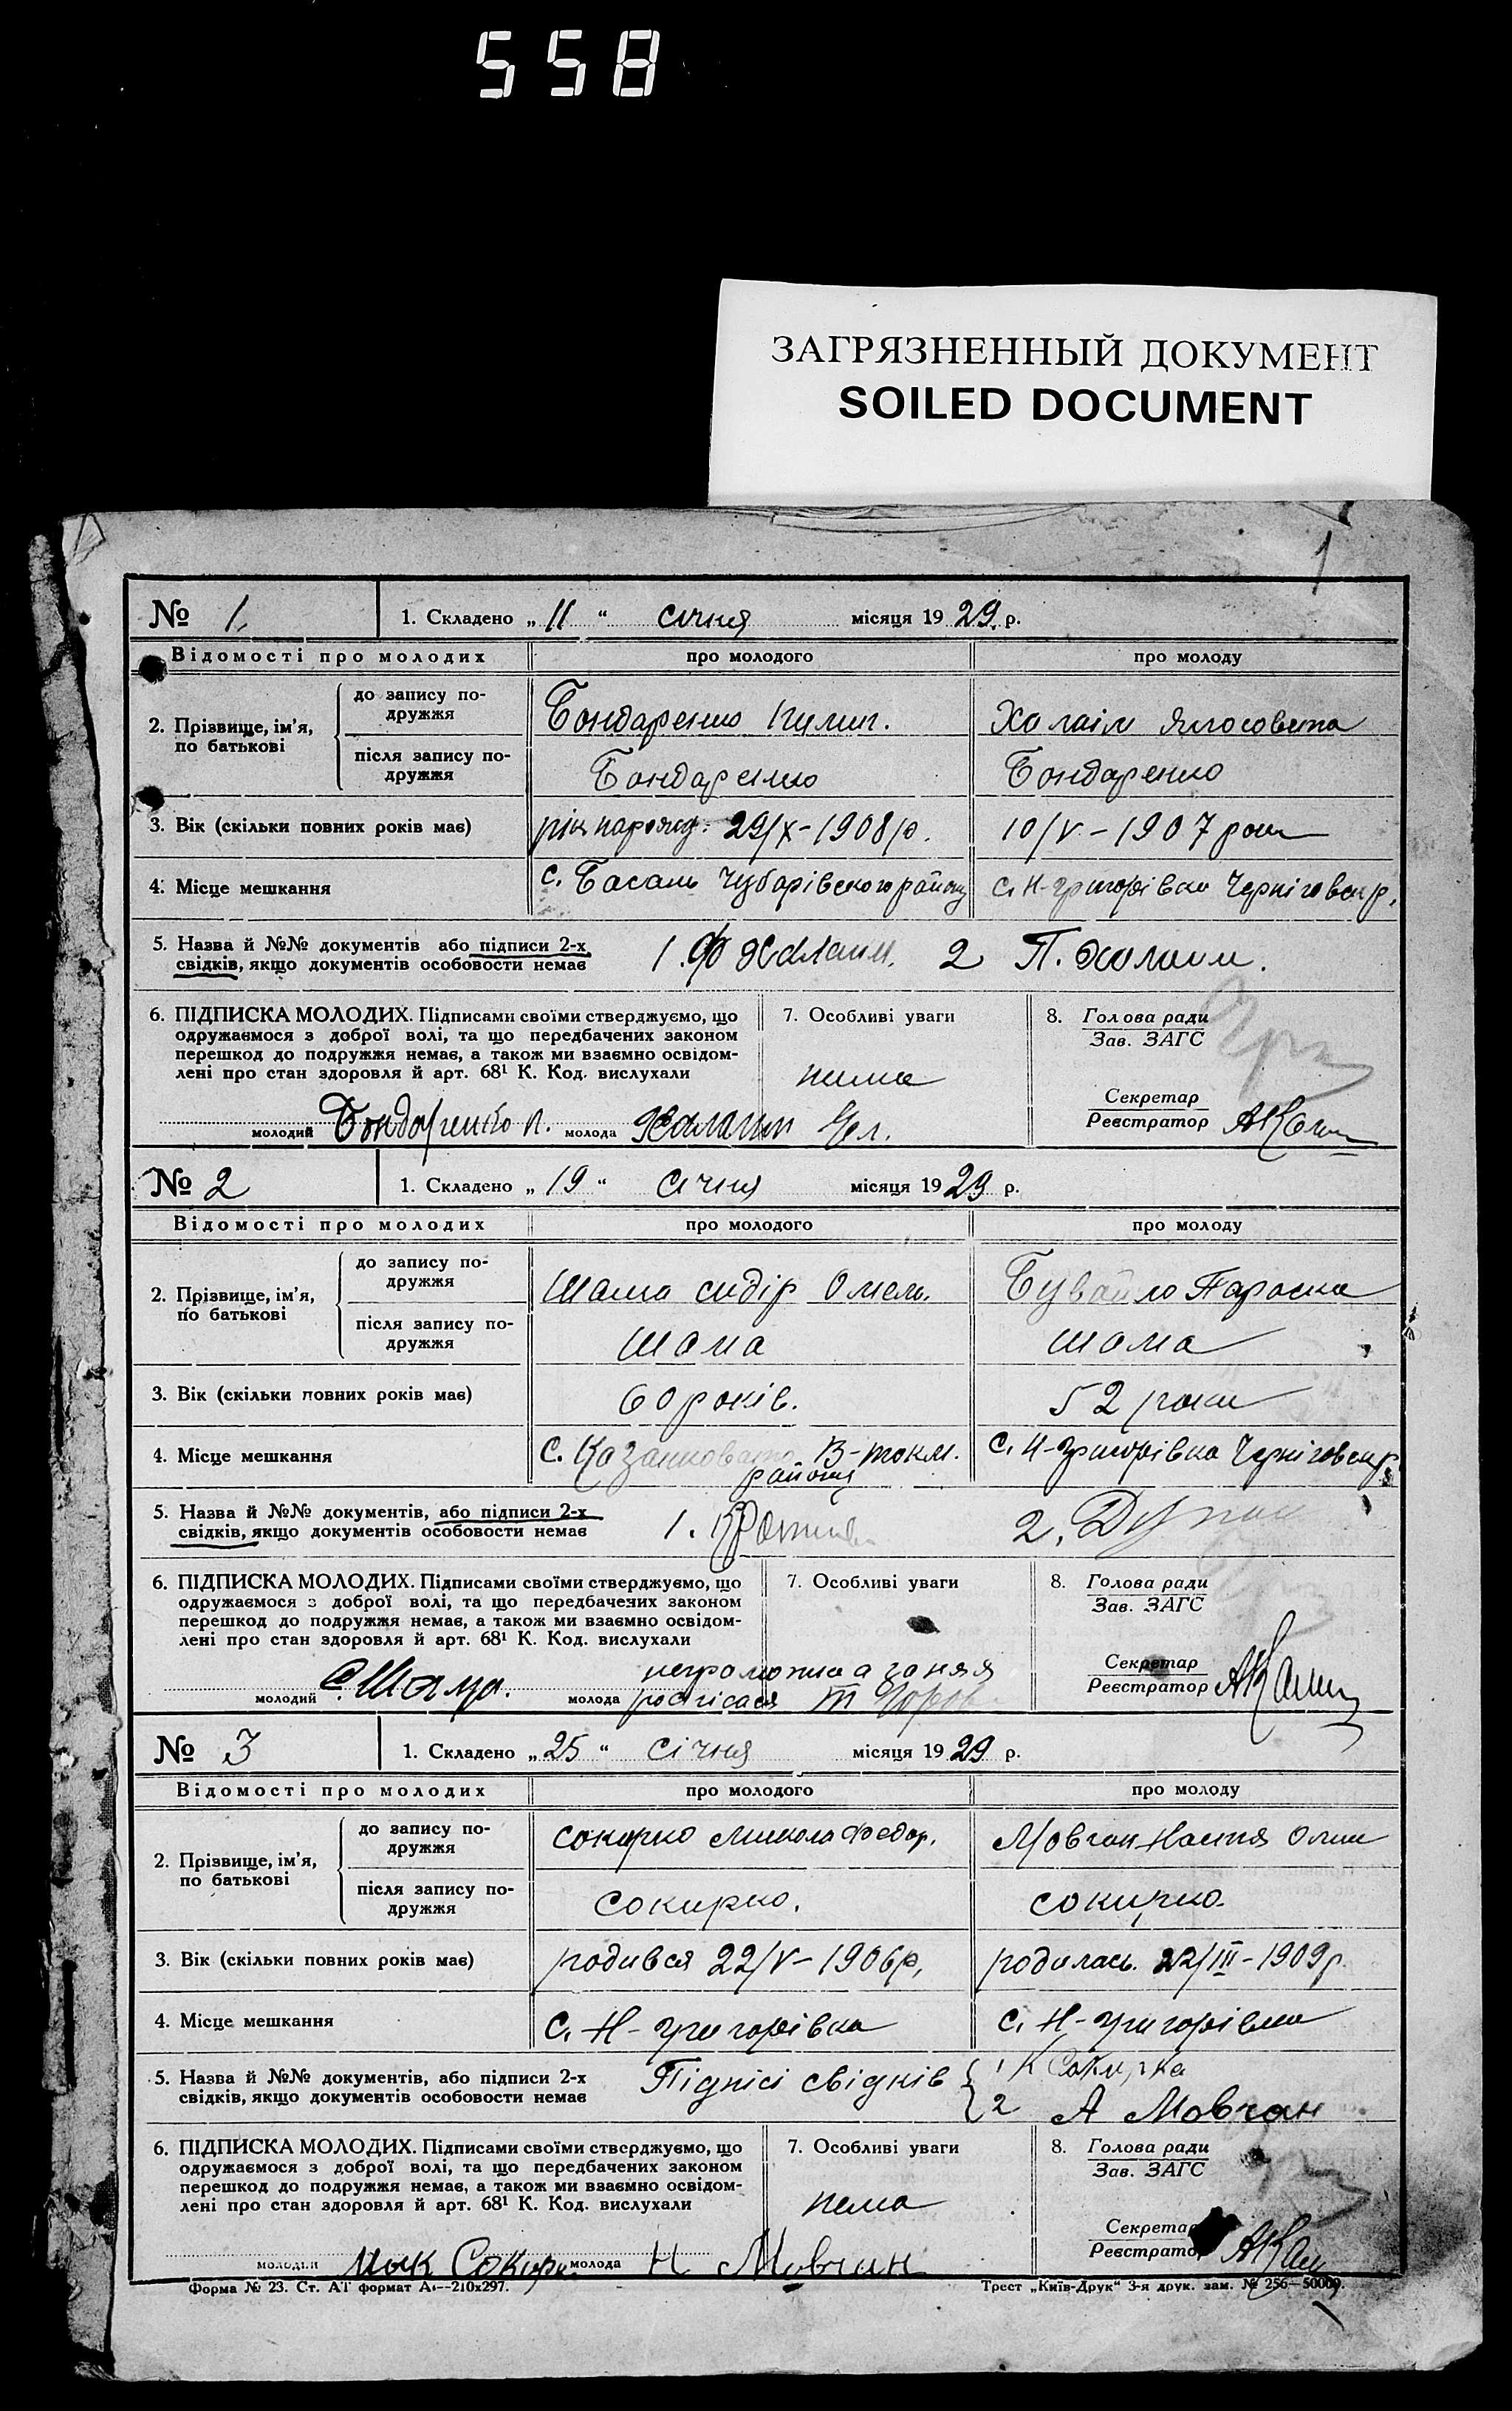 558
ЗАГРЯЗНЕННЫЙ ДОКУМЕНТ
SOILED DOCUMENT
1
№ 1. 1. Складено „ 11 “ січня місяця 19 29. р.
Відомості про молодих про молодого про молоду
2. Прізвище, ім'я, по батькові
до запису по-
дружжя
Бондаренко
після запису по-
дружжя
Бондаренко Бондаренко
3. Вік (скільки повних років має) рік народж: 29/X-1908 р. 10/V-1907 роки
4. Місце мешкання с. Басань Чубарівського району с. Н-Григорівка Черніговськ р.
5. Назва й №№ документів або підписи 2-х
свідків, якщо документів особовости немає
1. Ф Халаим. 2 П. Холаим.
6. ПІДПИСКА МОЛОДИХ. Підписами своїми стверджуємо, що
одружаємося з доброї волі, та що передбачених законом
перешкод до подружжя немає, а також ми взаємно освідом-
лені про стан здоровля й арт. 68¹ К. Код. вислухали
7. Особливі уваги
нима
8. Голова ради
Зав. ЗАГС
Секретар
Реєстратор
молодий Бондаренко П. молода
№ 2 1. Складено „ 19 “ січня місяця 19 29 р.
Відомості про молодих про молодого про молоду
2. Прізвище, ім'я,
по батькові
до запису по-
дружжя
Шама сидір Омел. Бувайло Параска
після запису по-
дружжя
Шама шама
3. Вік (скільки повних років має) 60 років. 52 роки
4. Місце мешкання с. Казанковато В-токм.
району
с. Н-Григорівка Черніговськ р.
5. Назва й №№ документів, або підписи 2-х
свідків, якщо документів особовости немає
1. 2.
6. ПІДПИСКА МОЛОДИХ. Підписами своїми стверджуємо, що
одружаємося з доброї волі, та що передбачених законом
перешкод до подружжя немає, а також ми взаємно освідом-
лені про стан здоровля й арт. 68¹ К. Код. вислухали
7. Особливі уваги
8. Голова ради
Зав. ЗАГС
Секретар
Реєстратор
неграмотна а за неяя
молодий С. Шама. молода росписася
№ 3 1. Складено „ 25 “ січня місяця 19 29 р.
Відомості про молодих про молодого про молоду
2. Прізвище, ім'я,
по батькові
до запису по-
дружжя
Сокирко Микола Федор. Мовчан Настя
після запису по-
дружжя
Сокирко. Сокирко.
3. Вік (скільки повних років має) родився 22/V-1906 р, родилась. 22/III-1909 р.
4. Місце мешкання с. Н-Григорівка с. Н-Григорівка
5. Назва й №№ документів, або підписи 2-х
свідків, якщо документів особовости немає
Підпісі свідків { 1 К Сокирка
2 А Мовчан
6. ПІДПИСКА МОЛОДИХ. Підписами своїми стверджуємо, що
одружаємося з доброї волі, та що передбачених законом
перешкод до подружжя немає, а також ми взаємно освідом-
лені про стан здоровля й арт. 68¹ К. Код. вислухали
7. Особливі уваги
нема
8. Голова ради
Зав. ЗАГС
Секретар
Реєстратор
молодий Мик Сокирк молода Н Мовчан
Форма № 23. Ст. АТ формат А₄—210х297. Трест „Київ-Друк“ 3-я друк. зам. № 256—50000.